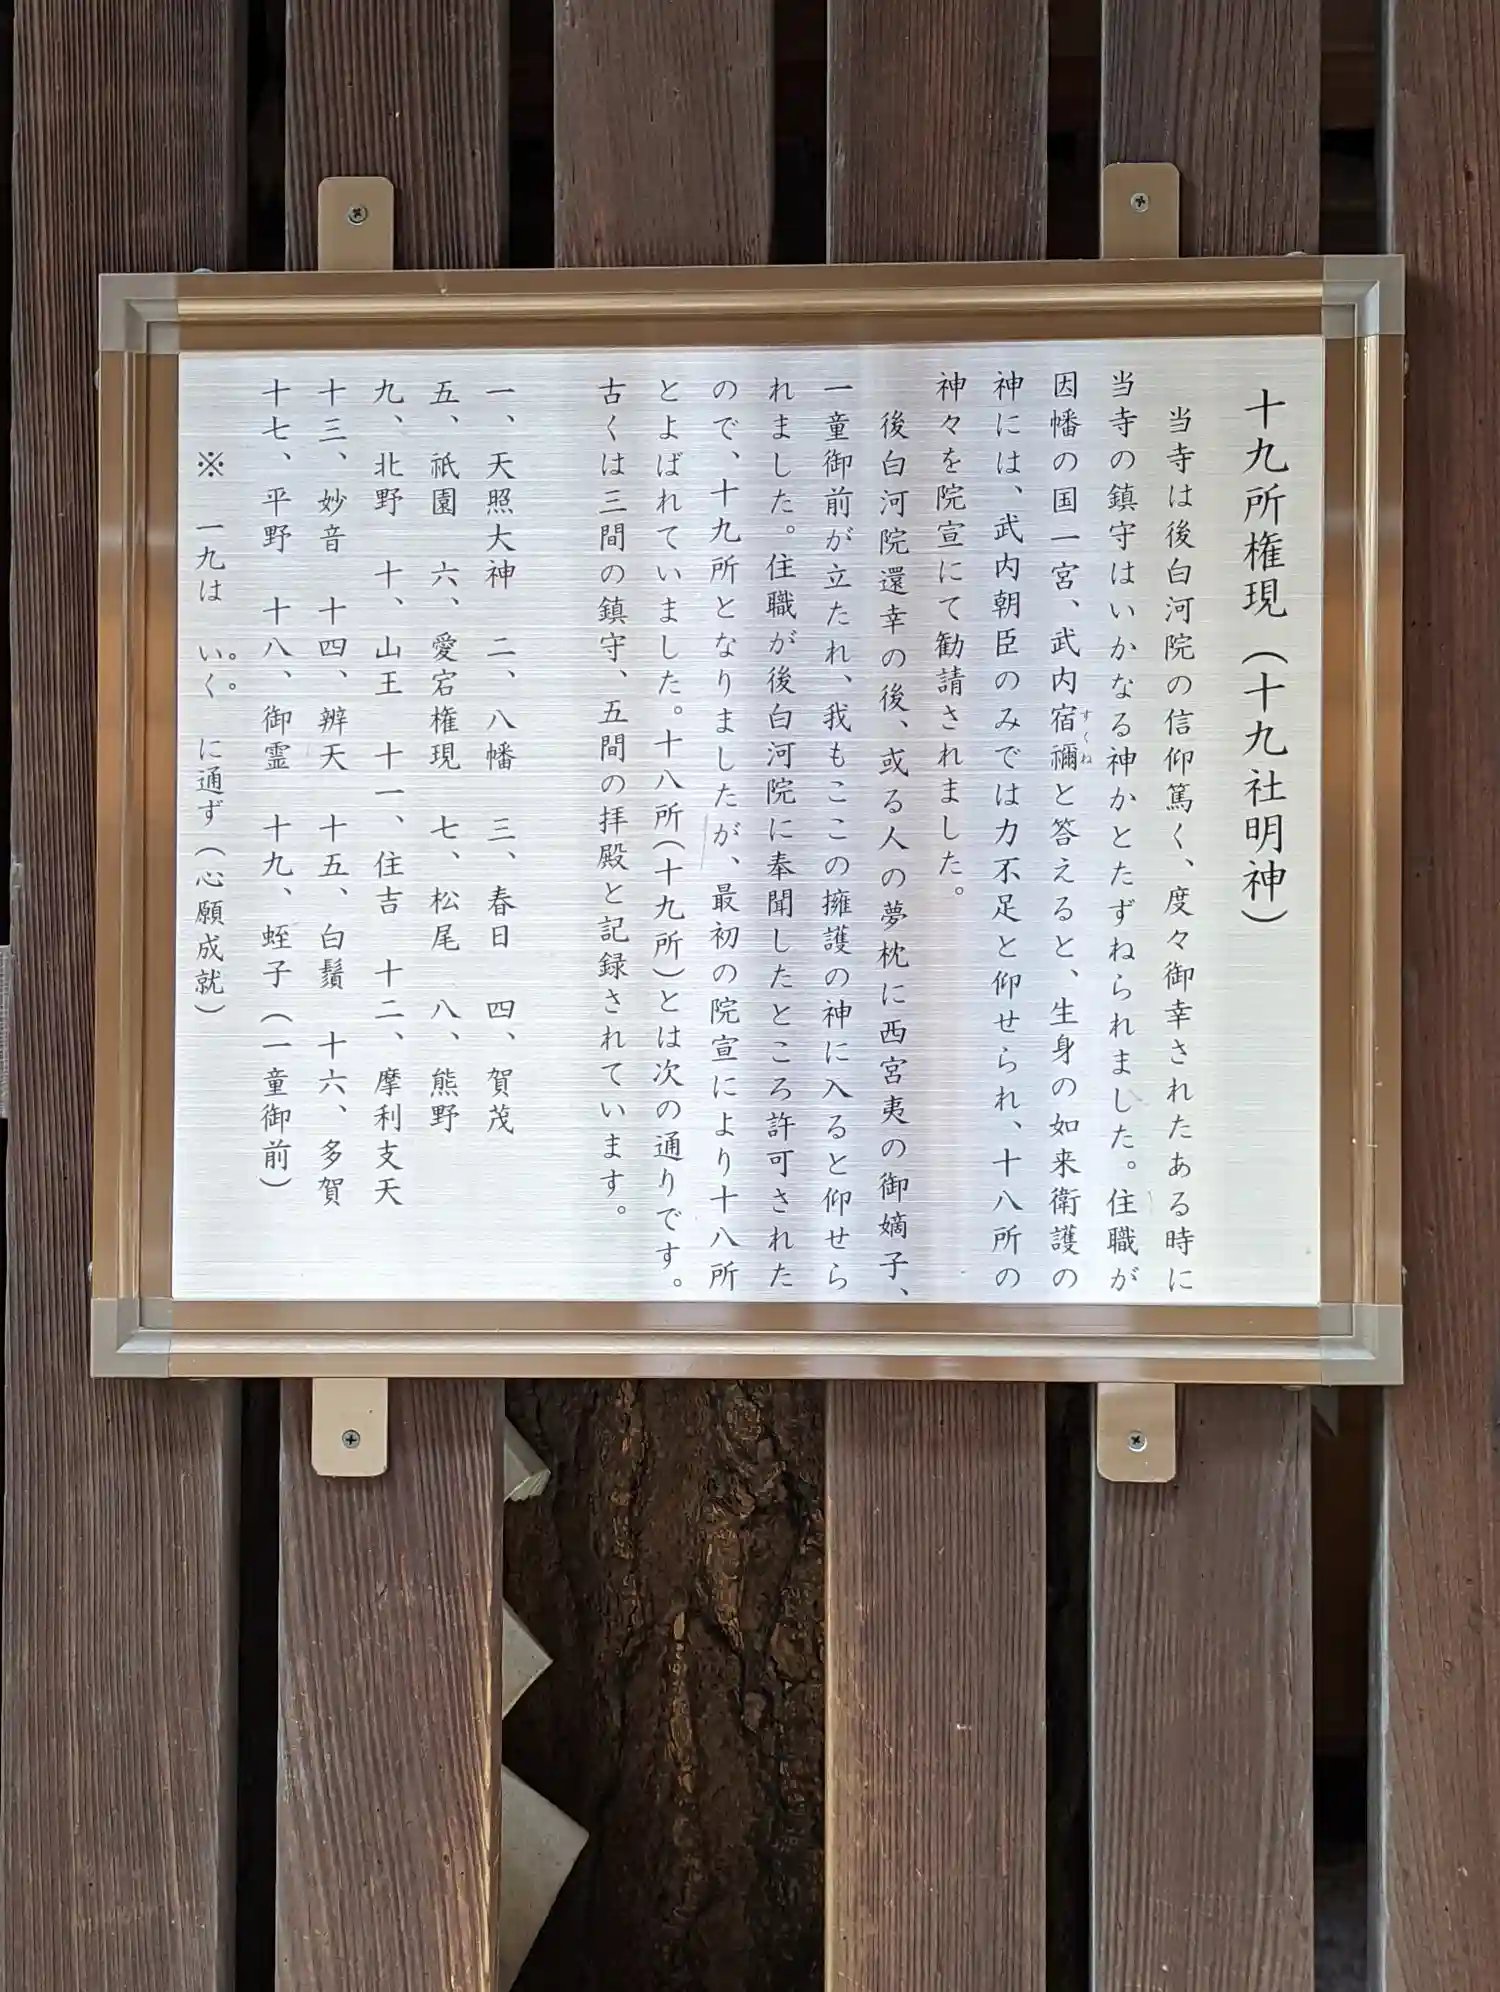 十九所権現（十九社明神）
当寺は後白河院の信仰篤く、度々御幸されたある時に
当寺の鎮守はいかなる神かとたずねられました。住職が
因幡の国一宮、武内宿禰と答えると、生身の如来衛護の
すくね
神には、武内朝臣のみでは力不足と仰せられ、十八所の
神々を院宣にて勧請されました。
後白河院還幸の後、或る人の夢枕に西宮夷の御嫡子、
一童御前が立たれ、我もここの擁護の神に入ると仰せら
れました。住職が後白河院に奉聞したところ許可された
ので、十九所となりましたが、最初の院宣により十八所
とよばれていました。十八所（十九所）とは次の通りです。
古くは三間の鎮守、五間の拝殿と記録されています。
一、天照大神　二、八幡　三、春日　四、賀茂
五、祇園　六、愛宕権現　七、松尾　八、熊野
九、北野　十、山王　十一、住吉　十二、摩利支天
十三、妙音　十四、辨天　十五、白鬚　十六、多賀
十七、平野　十八、御霊　十九、蛭子（一童御前）
※　一九は　い。く。　に通ず（心願成就）